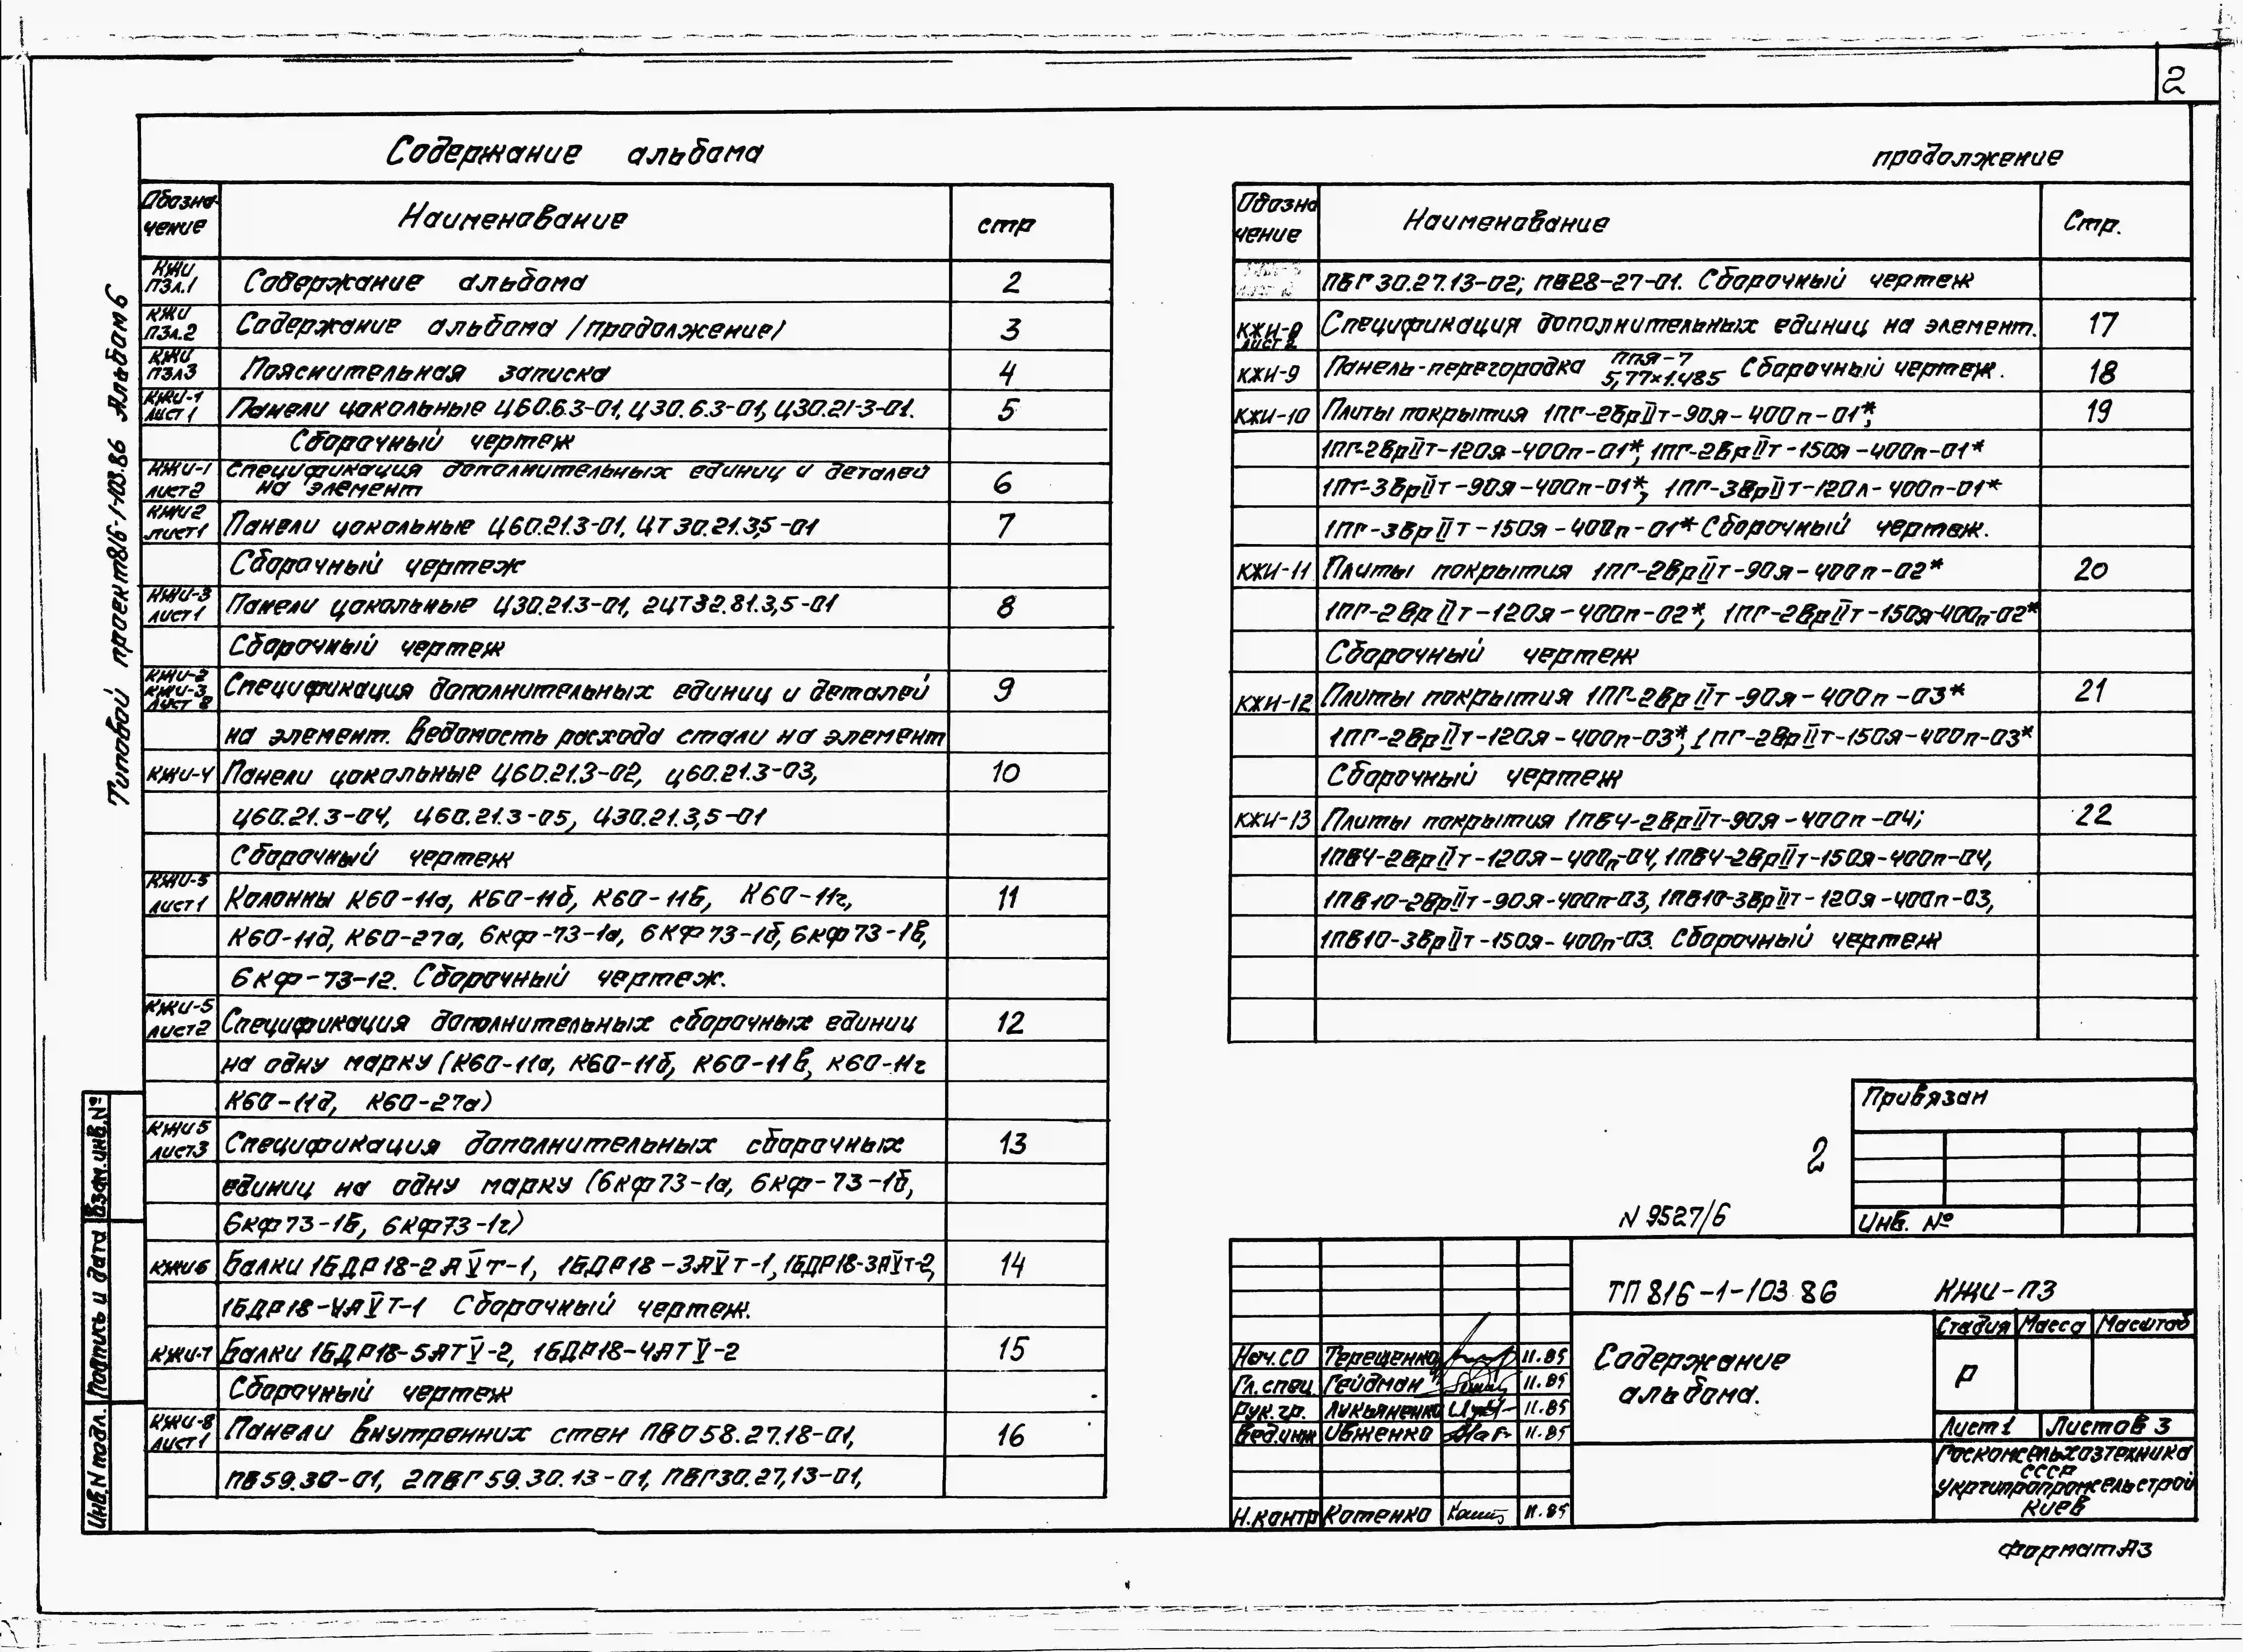 2
Содержание альбома
Обозна-
чение
Наименование
стр
КЖИ
ПЗл.1
Содержание альбома
2
КЖИ
ПЗл.2
Содержание альбома /продолжение/
3
КЖИ
ПЗл3
Пояснительная записка
4
КЖИ-1
лист 1
Панели цокольные Ц60.6.3-01, Ц30.6.3-01, Ц30.21-3-01.
5
Сборочный чертеж
КЖИ-1
лист2
Спецификация дополнительных единиц и деталей
на элемент
6
КЖИ2
лист1
Панели цокольные Ц60.21.3-01, ЦТ30.21.3,5-01
7
Сборочный чертеж
КЖИ-3
лист1
Панели цокольные Ц30.21.3-01, 2ЦТ32.81.3,5-01
8
Сборочный чертеж
КЖИ-2
КЖИ-3
Лист 2
Спецификация дополнительных единиц и деталей
9
на элемент. Ведомость расхода стали на элемент
КЖИ-4
Панели цокольные Ц60.21.3-02, Ц60.21.3-03,
10
Ц60.21.3-04, Ц60.21.3-05, Ц30.21.3,5-01
Сборочный чертеж
КЖИ-5
лист1
Колонны К60-11а, К60-11б, К60-11в, К60-11г,
11
К60-11д, К60-27а, 6кф-73-1а, 6КФ73-1б, 6кф73-1в,
6кф-73-12. Сборочный чертеж.
КЖИ-5
лист2
Спецификация дополнительных сборочных единиц
12
на одну марку (К60-11а, К60-11б, К60-11в, К60-11г
К60-11д, К60-27а)
КЖИ5
лист3
Спецификация дополнительных сборочных
13
единиц на одну марку (6кф73-1а, 6кф-73-1б,
6кф73-1в, 6кф73-1г)
КЖИ6
Балки 1БДР18-2АⅤт-1, 1БДР18-3АⅤт-1, 1БДР18-3АⅤт-2,
14
1БДР18-4АⅤт-1 Сборочный чертеж.
КЖИ-7
Балки 1БДР18-5АТⅤ-2, 1БДР18-4АТⅤ-2
15
Сборочный чертеж
КЖИ-8
лист1
Панели внутренних стен ПВО58.27.18-01,
16
ПВ59.30-01, 2ПВГ59.30.13-01, ПВГ30.27,13-01,
продолжение
Обозна
чение
Наименование
Стр.
ПВГ30.27.13-02; ПВ28-27-01. Сборочный чертеж
КЖИ-8
лист 2
Спецификация дополнительных единиц на элемент.
17
КЖИ-9
Панель-перегородка ППЯ-7 5,77×1.485 Сборочный чертеж.
18
КЖИ-10
Плиты покрытия 1ПГ-2ВрⅡт-90я-400п-01*,
19
1ПГ-2ВрⅡт-120я-400п-01*, 1ПГ-2ВрⅡт-150я-400п-01*
1ПГ-3ВрⅡт-90я-400п-01*, 1ПГ-3ВрⅡт-120л-400п-01*
1ПГ-3ВрⅡт-150я-400п-01* Сборочный чертеж.
КЖИ-11
Плиты покрытия 1ПГ-2ВрⅡт-90я-400п-02*
20
1ПГ-2ВрⅡт-120я-400п-02*, 1ПГ-2ВрⅡт-150я-400п-02*
Сборочный чертеж
КЖИ-12
Плиты покрытия 1ПГ-2ВрⅡт-90я-400п-03*
21
1ПГ-2ВрⅡт-120я-400п-03*, 1ПГ-2ВрⅡт-150я-400п-03*
Сборочный чертеж
КЖИ-13
Плиты покрытия 1ПВ4-2ВрⅡт-90я-400п-04;
22
1ПВ4-2ВрⅡт-120я-400п-04, 1ПВ4-2ВрⅡт-150я-400п-04,
1ПВ10-2ВрⅡт-90я-400п-03, 1ПВ10-3ВрⅡт-120я-400п-03,
1ПВ10-3ВрⅡт-150я-400п-03. Сборочный чертеж
Типовой проект 816-1-103.86 Альбом 6
Взам.инв.№
Подпись и дата
Инв.N подл.
Привязан
Инв. №
2
N 9527/6
ТП 816-1-103.86 КЖИ-ПЗ
Содержание
альбома.
Стадия
Масса
Масштаб
Р
Лист 1
Листов 3
Госкомсельхозтехника
СССР
Укргипропромсельстрой
Киев
Нач.СО Терещенко 11.85
Гл.спец Гейдман 11.85
Рук.гр. Лукьяненко 11.85
Вед.инж Ивженко 11.85
Н.контр Котенко 11.85
Формат А3